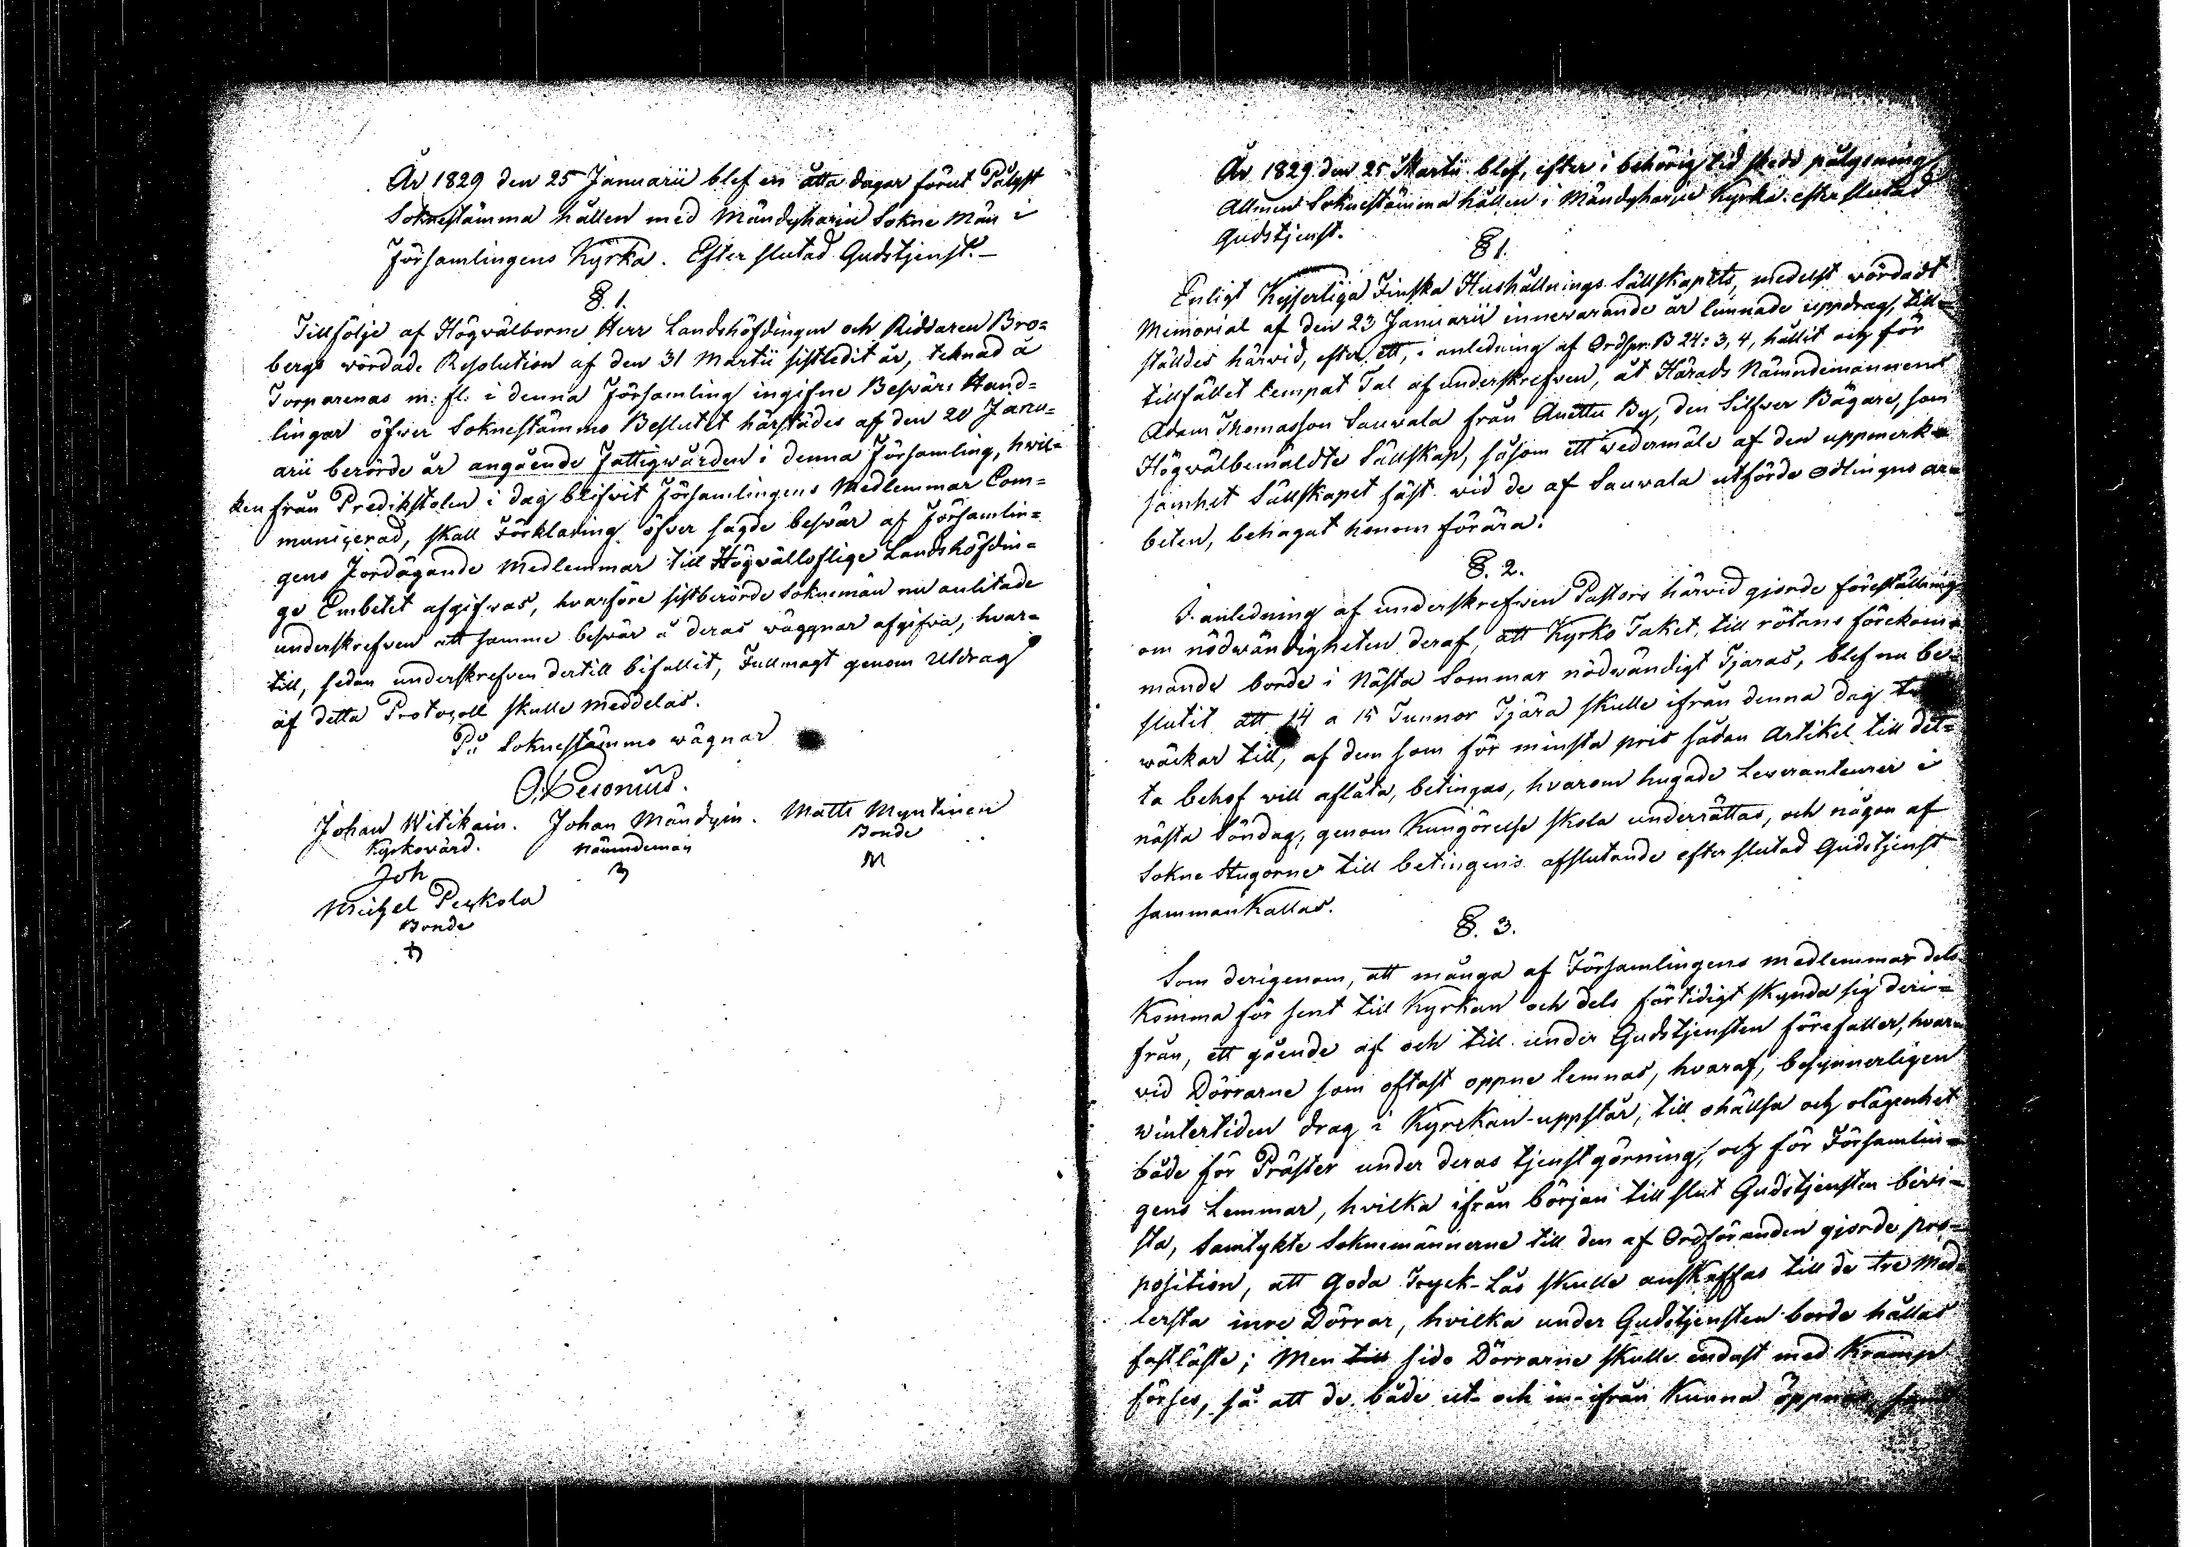 År 1829 den 25 Januarii blef en åtta dagar förut Pålyst
Soknestämma hållen med Mändyharju Sokne Män i
Församlingens Kyrka. Efter slutad Gudstjenst.
§. 1.
Tillfölje af Högvälborne Herr Landshöfdingen och Riddaren Bro=
bergs vördade Resolution af den 31 Martii sistledit år, teknad å
Torparenas m: fl: i denna Församling ingifne Besvärs Hand=
lingar öfver Soknestämmo Beslutet härstädes af den 20 Janu=
arii berörde år angående Fattigwården i denna Församling, hvil=
ken från Predikstolen i dag blifvit Församlingens Medlemmar Com=
municerad, skall Förklaring öfver sagde besvär af Församlin=
gens Jordägande Medlemmar till Högvällofliga Landshöfdin=
ge Embetet afgifvas, hvarföre sistberörde Soknemän nu anlitade
underskrefven att samme besvär å deras wäggnar afgifva, hvar=
till, sedan underskrefven dertill bifallit, Fullmagt genom Utdrag
af detta Protocoll skulle meddelas.
På Soknestämmo wägnar
Johan Witikain. Johan Mändyin. Matts Myntinen
Kyrkovärd. Nämndeman Bonde
Joh M
Michel Peskola
Bonde
År 1829 den 25 Martii blef, efter i behörig tid skedd pålysning
Allmen Soknestämma hållen i Mändyharju Kyrka efter slutad
Gudstjenst.
§ 1.
Enligt Kejserliga Finska Hushållnings Sällskapets, medelst wördadt
Memorial af den 23 Januarii innevarande år lemnade uppdrag, till=
ställdes härvid, efter ett, i anledning af Ordspr. B 24: 3, 4, hållit och för
tillfället lempat Tal af underskrefven, åt Härads Nämndemannen
Adam Thomasson Sauvala från Anettu By, den Silfwer Bägare, som
Högvälbemäldte Sällskap, såsom ett wedermäle af den uppmerk=
samhet Sällskapet fäst vid de af Sauvala utförde odlingns ar=
beten, behagat honom förära.
§. 2.
I anledning af underskrefven Pastors härvid gjorde föreställning
om nödwändigheten deraf, att Kyrko Taket, till rötans förekom=
mande borde i Nästa Sommar nödwändigt Tjäras, blef nu be=
slutit att 14 a 15 Tunnor Tjära skulle ifrån denna dag
wäckar till, af dem som för minsta pris sådan Artikel till det=
ta behof vill aflåta, betingas, hvarom hugade Leveranteurer i
nästa Söndag, genom Kungörelse skola underrättas, och någon af
Sokne Stugorne till betingens afslutande efter slutad Gudstjenst
sammankallas.
§. 3.
Som derigenom, att många af Församlingens medlemmar dels
Komma för sent till Kyrkan och dels förtidigt skynda sig deri=
från, ett gående af och till under Gudstjensten förefaller, hvar=
vid Dörrarne som oftast öppne lemnas, hvaraf, besynnerligen
wintertiden drag i Kyrckan uppstår, till ohällsa och olägenhet
både för Präster under deras tjenstgörning, och för Församlin=
gens Lemmar, hvilka ifrån början till slut Gudstjensten bivi=
sta, Samtykte Soknemännerne till den af Ordföranden gjorde pro=
position, att goda Tryck-Lås skulle anskaffas till de tre Med=
lersta inre Dörrar, hvilka under Gudstjensten borde hållas
fastläste; Men till sido Dörrarne skulle endast med Kramp
förses, så att de både ut- och in-ifrån kunna öppnas,